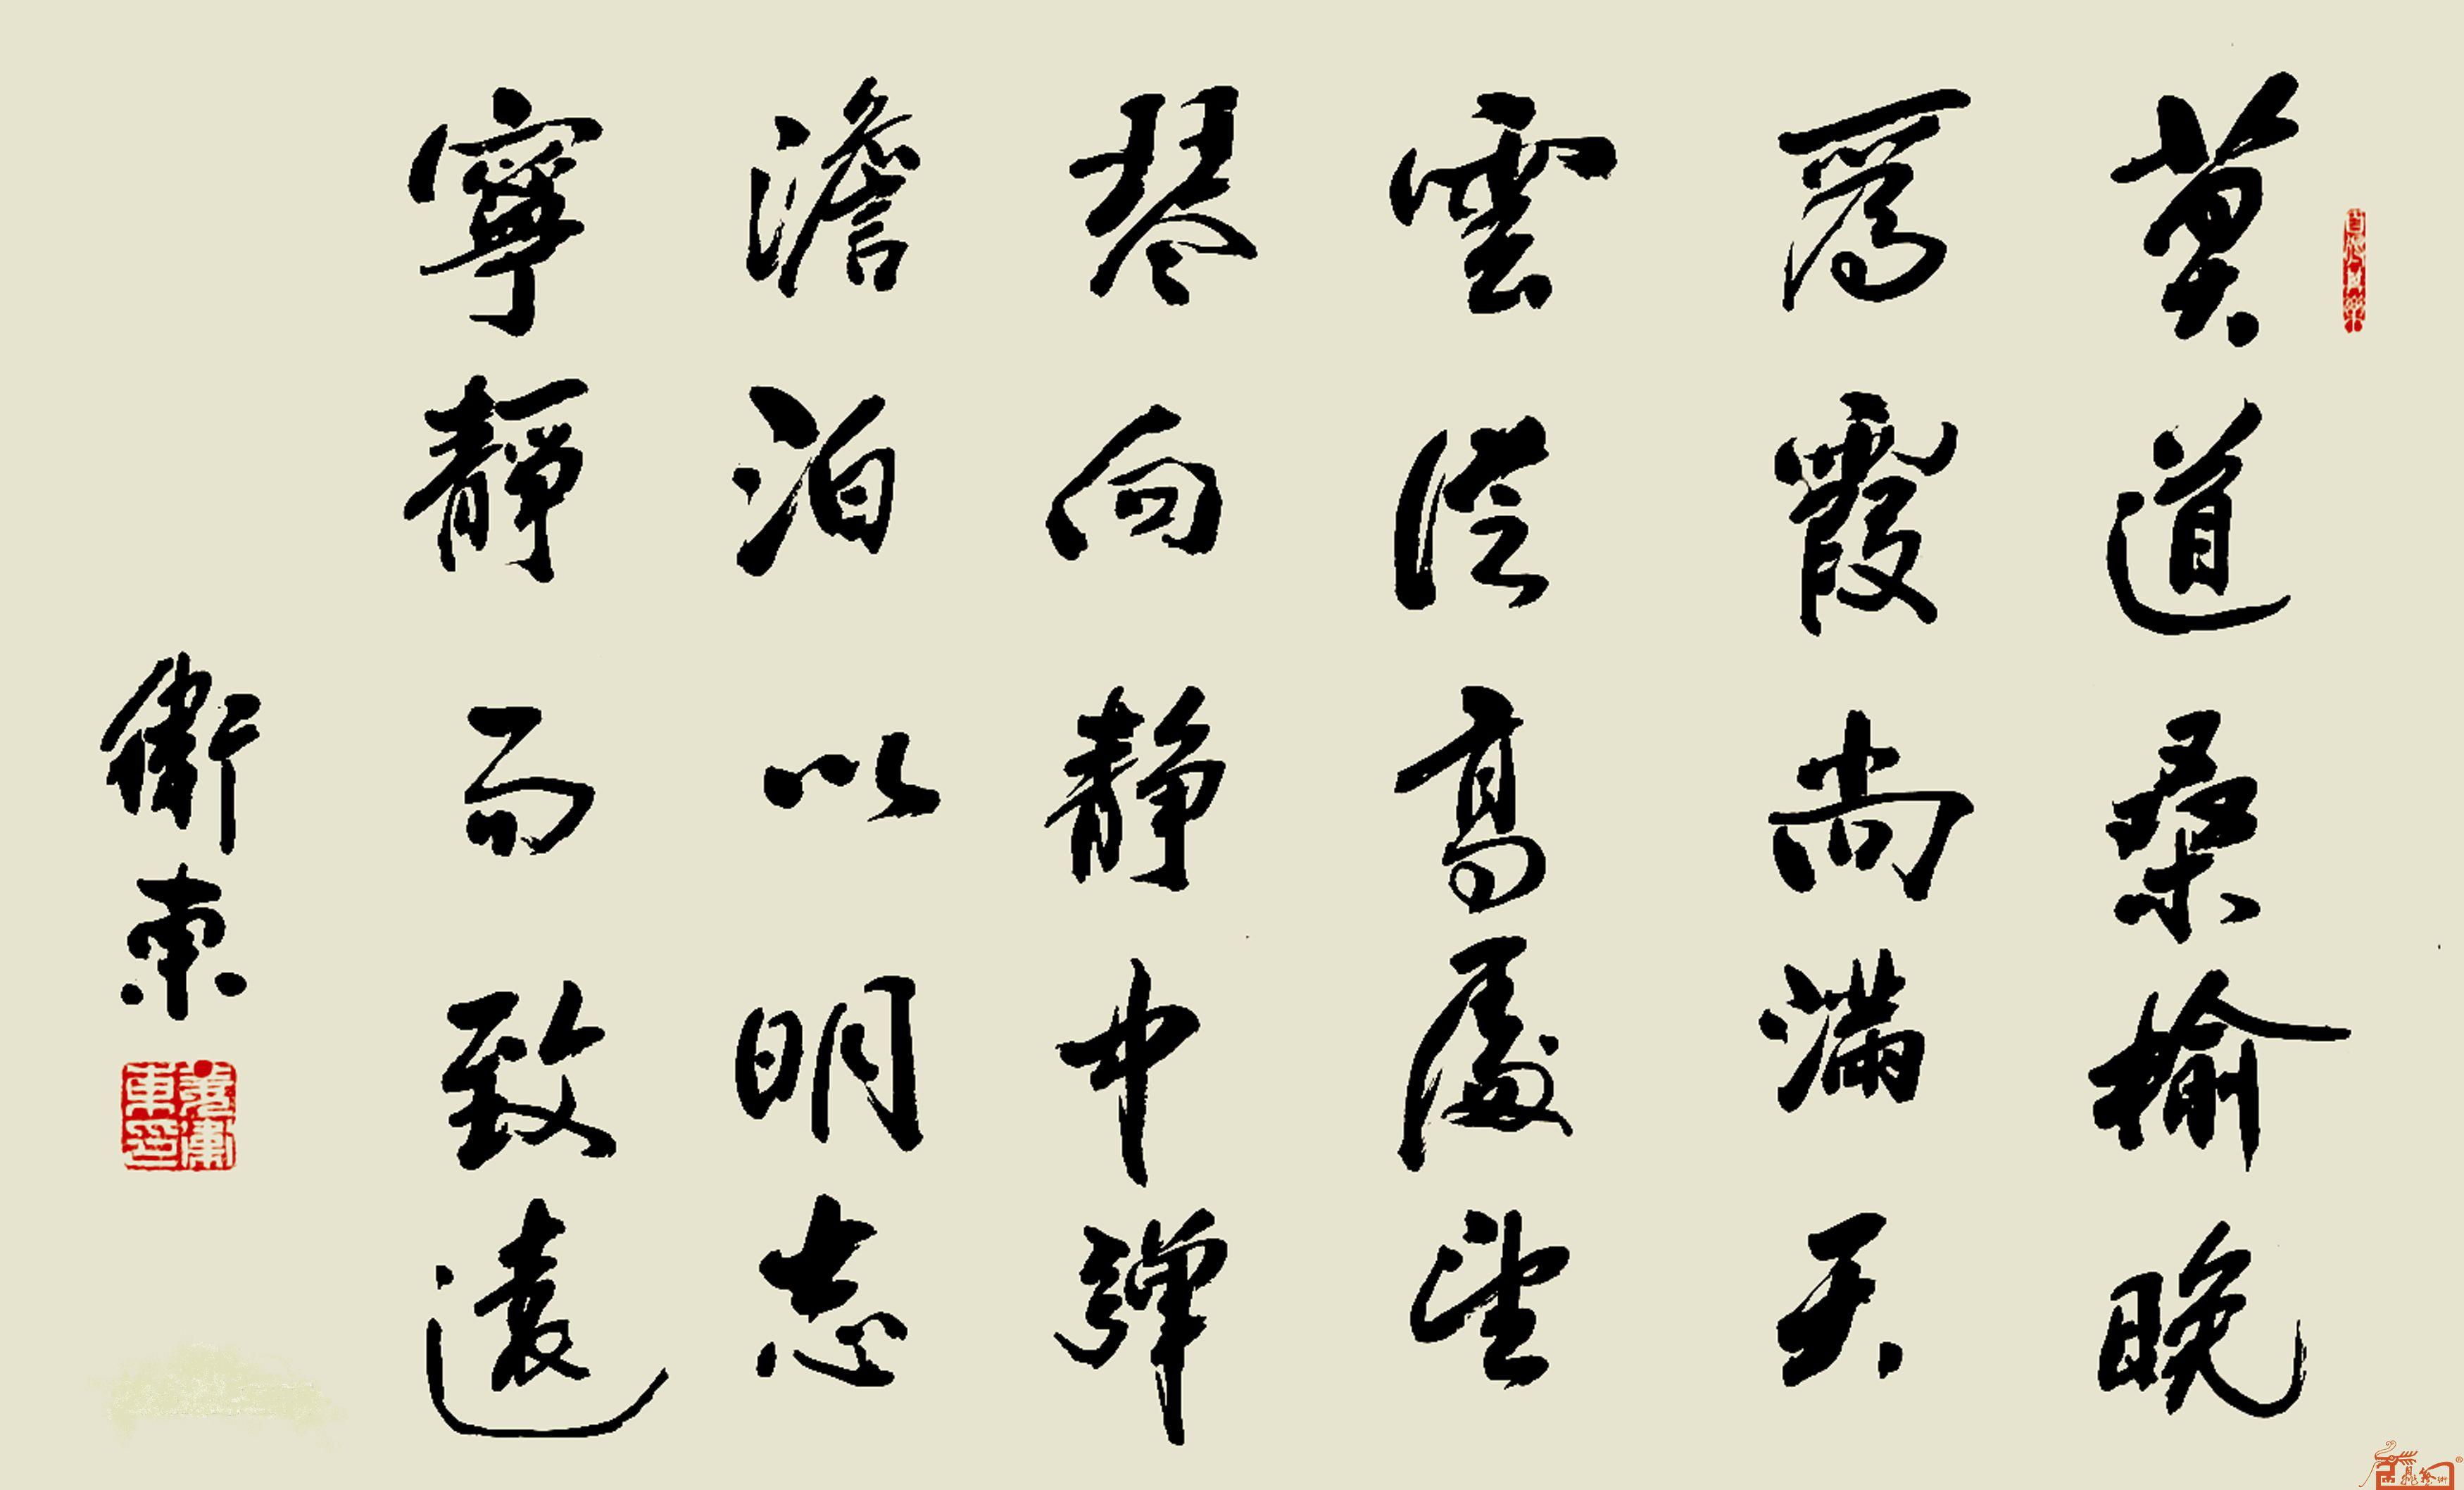 莫道桑榆晚
為霞尚滿天
雲從高處望
琴向靜中彈
澹泊以明志
寧靜而致遠
衛東